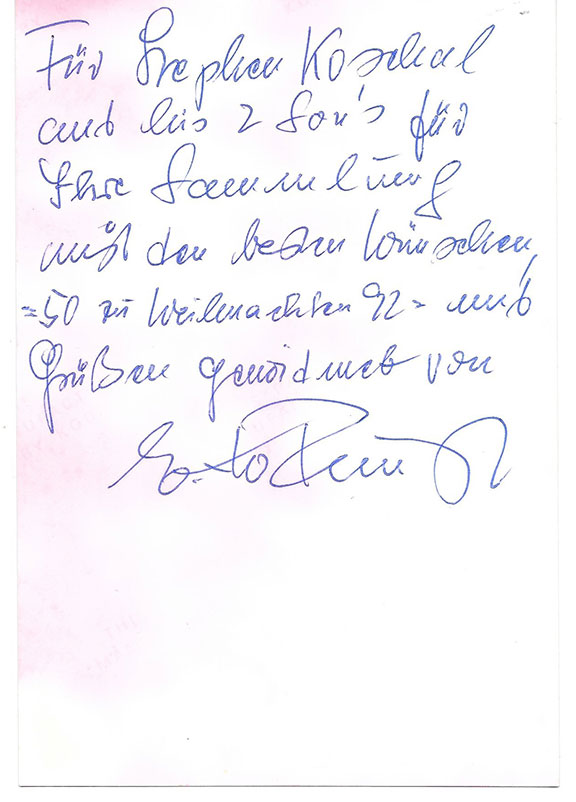 Für Stephen Koschal
and his 2 Son's für
Ihre Sammlung
mit den besten Wünschen,
=50 zu Weihnachten 92= und
Grüßen gewidmet von